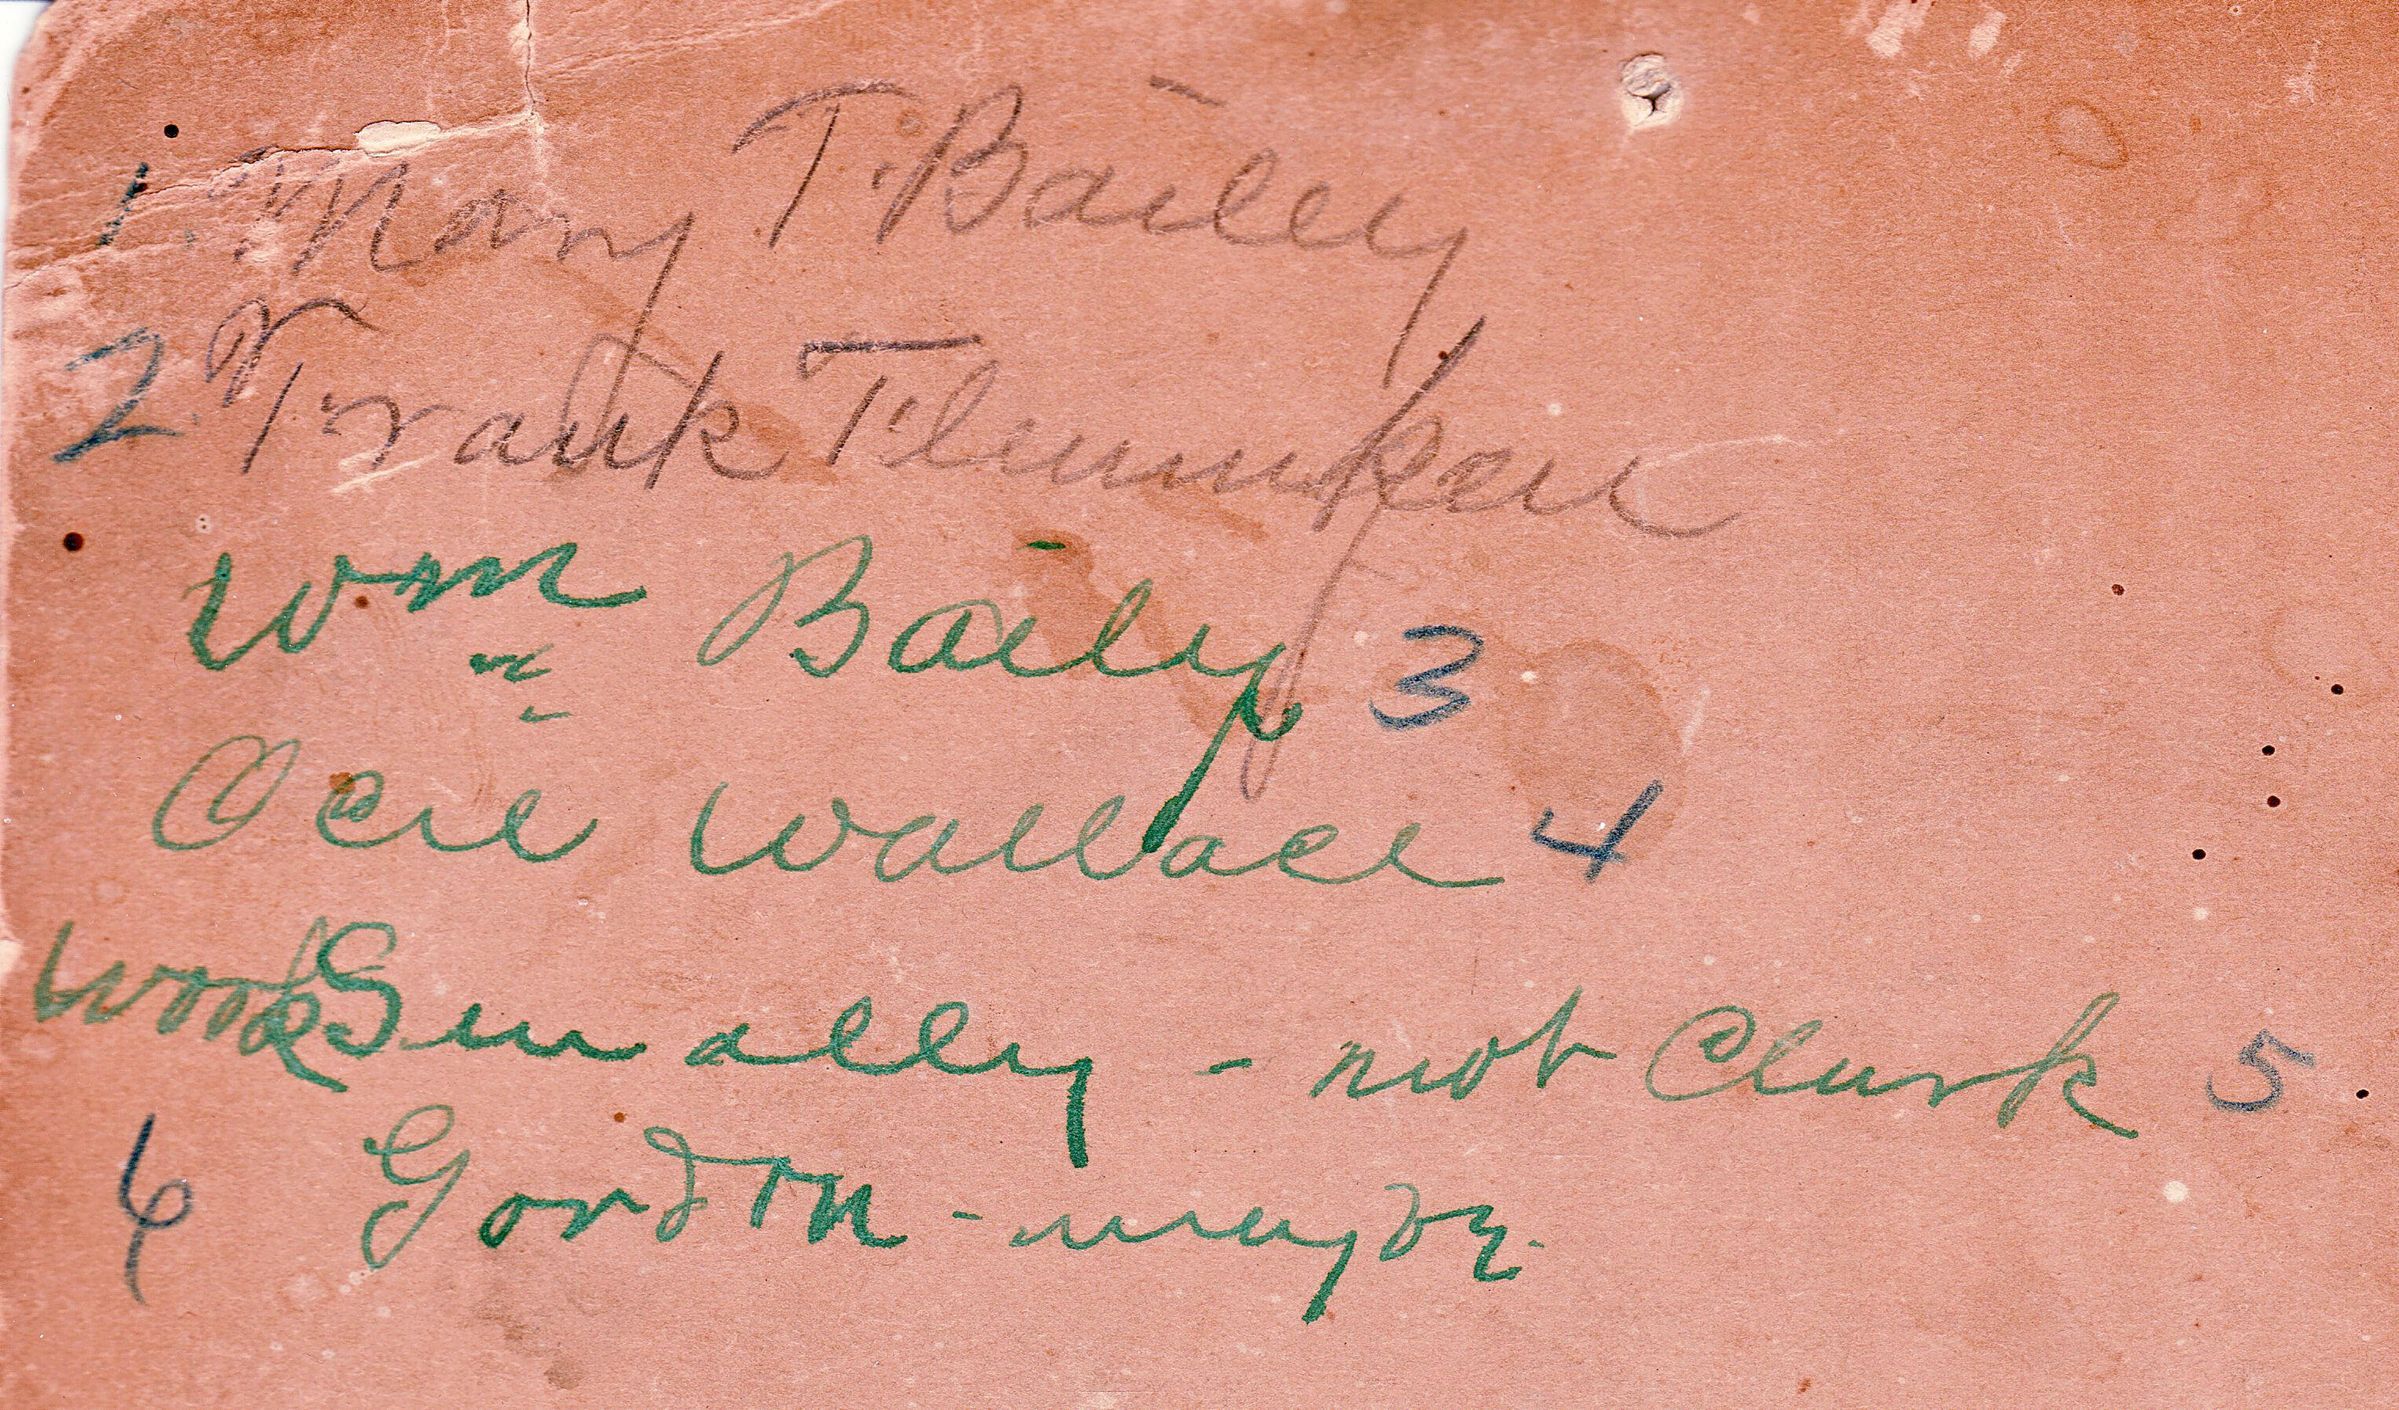 1. Mary T. Bailey
2. Frank Flenniken
Wm Baily 3
Ocie Wallace 4
Smalley - not Clark 5
6 Gordon - mayor.